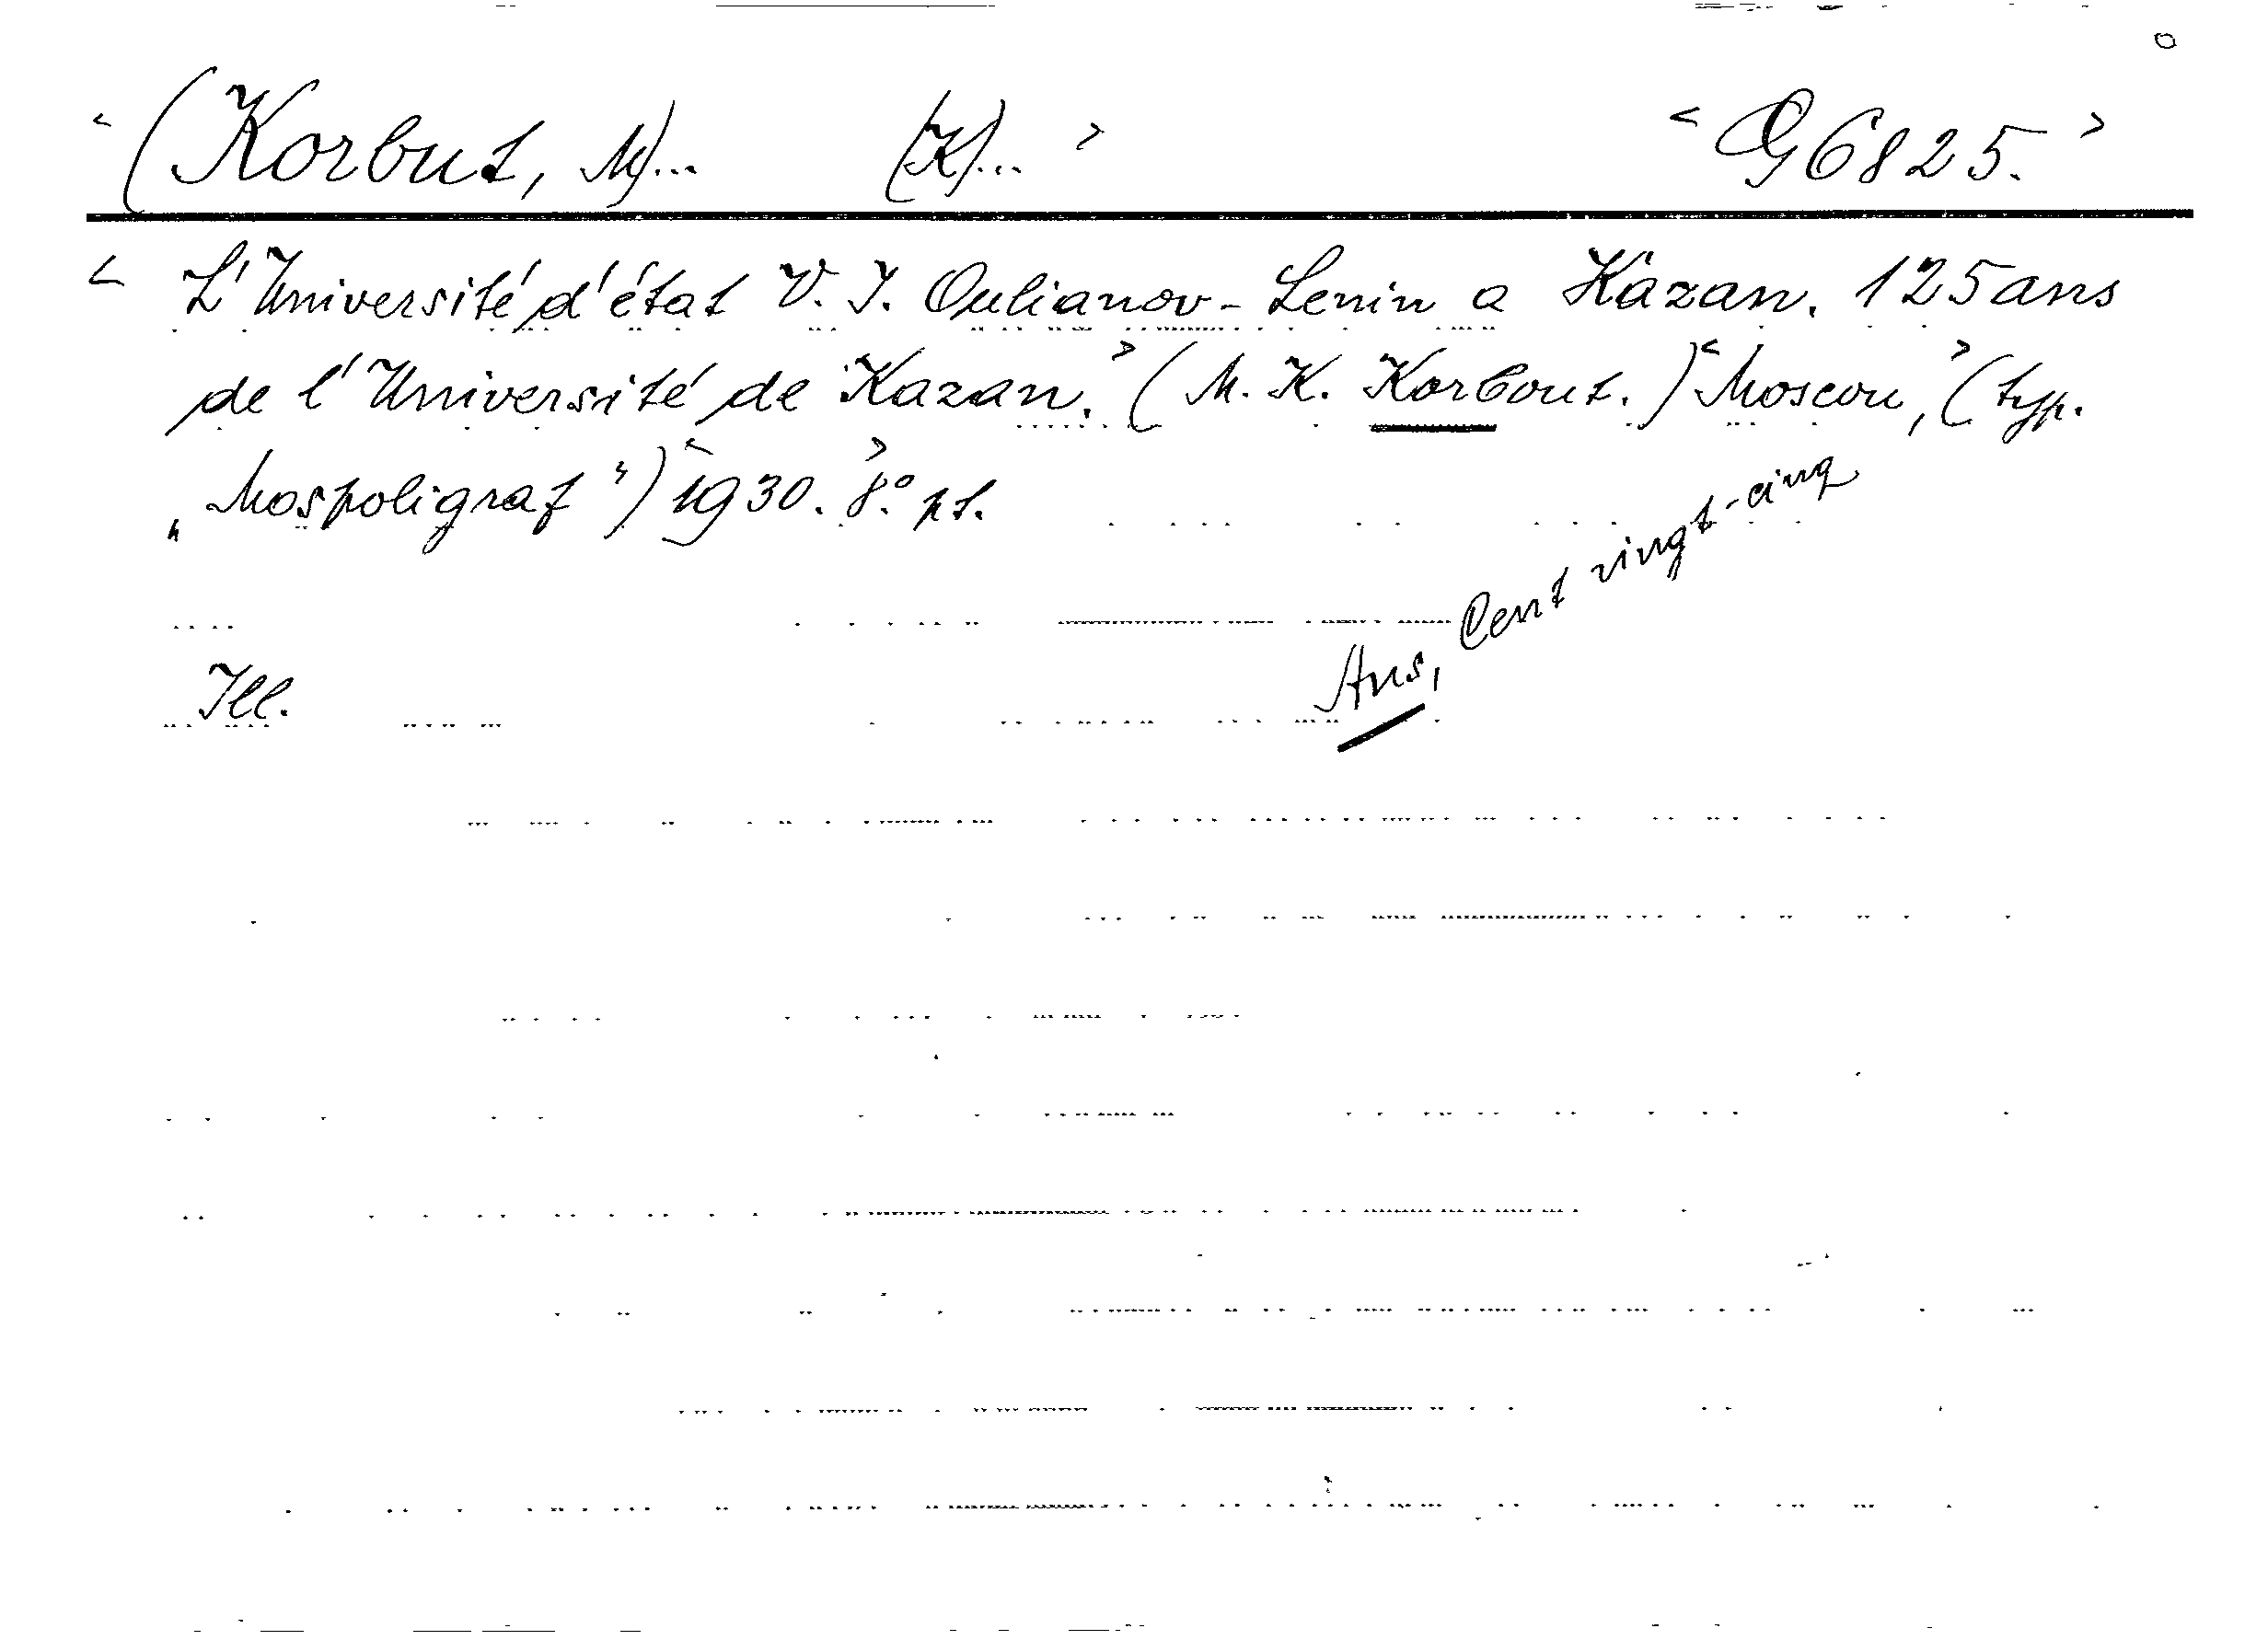 < (Korbut, M)... (K)... > < G 6825. >
< L'Université d'état V. I. Oulianov-Lenin a Kazan. 125 ans
de l'Université de Kazan. > (M. K. Korbout.) < Moscou, > (typ.
„Mospoligraf“) < 1930. > 8°. pt.
Ans, Cent vingt-cinq
Ill.